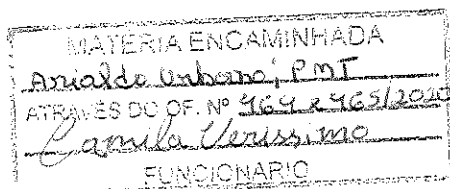 MATERIA ENCAMINHADA
Arialdo Urbano, PMT
ATRAVÉS DO OF. Nº 464 e 465/2020
Camila Verissimo
FUNCIONARIO